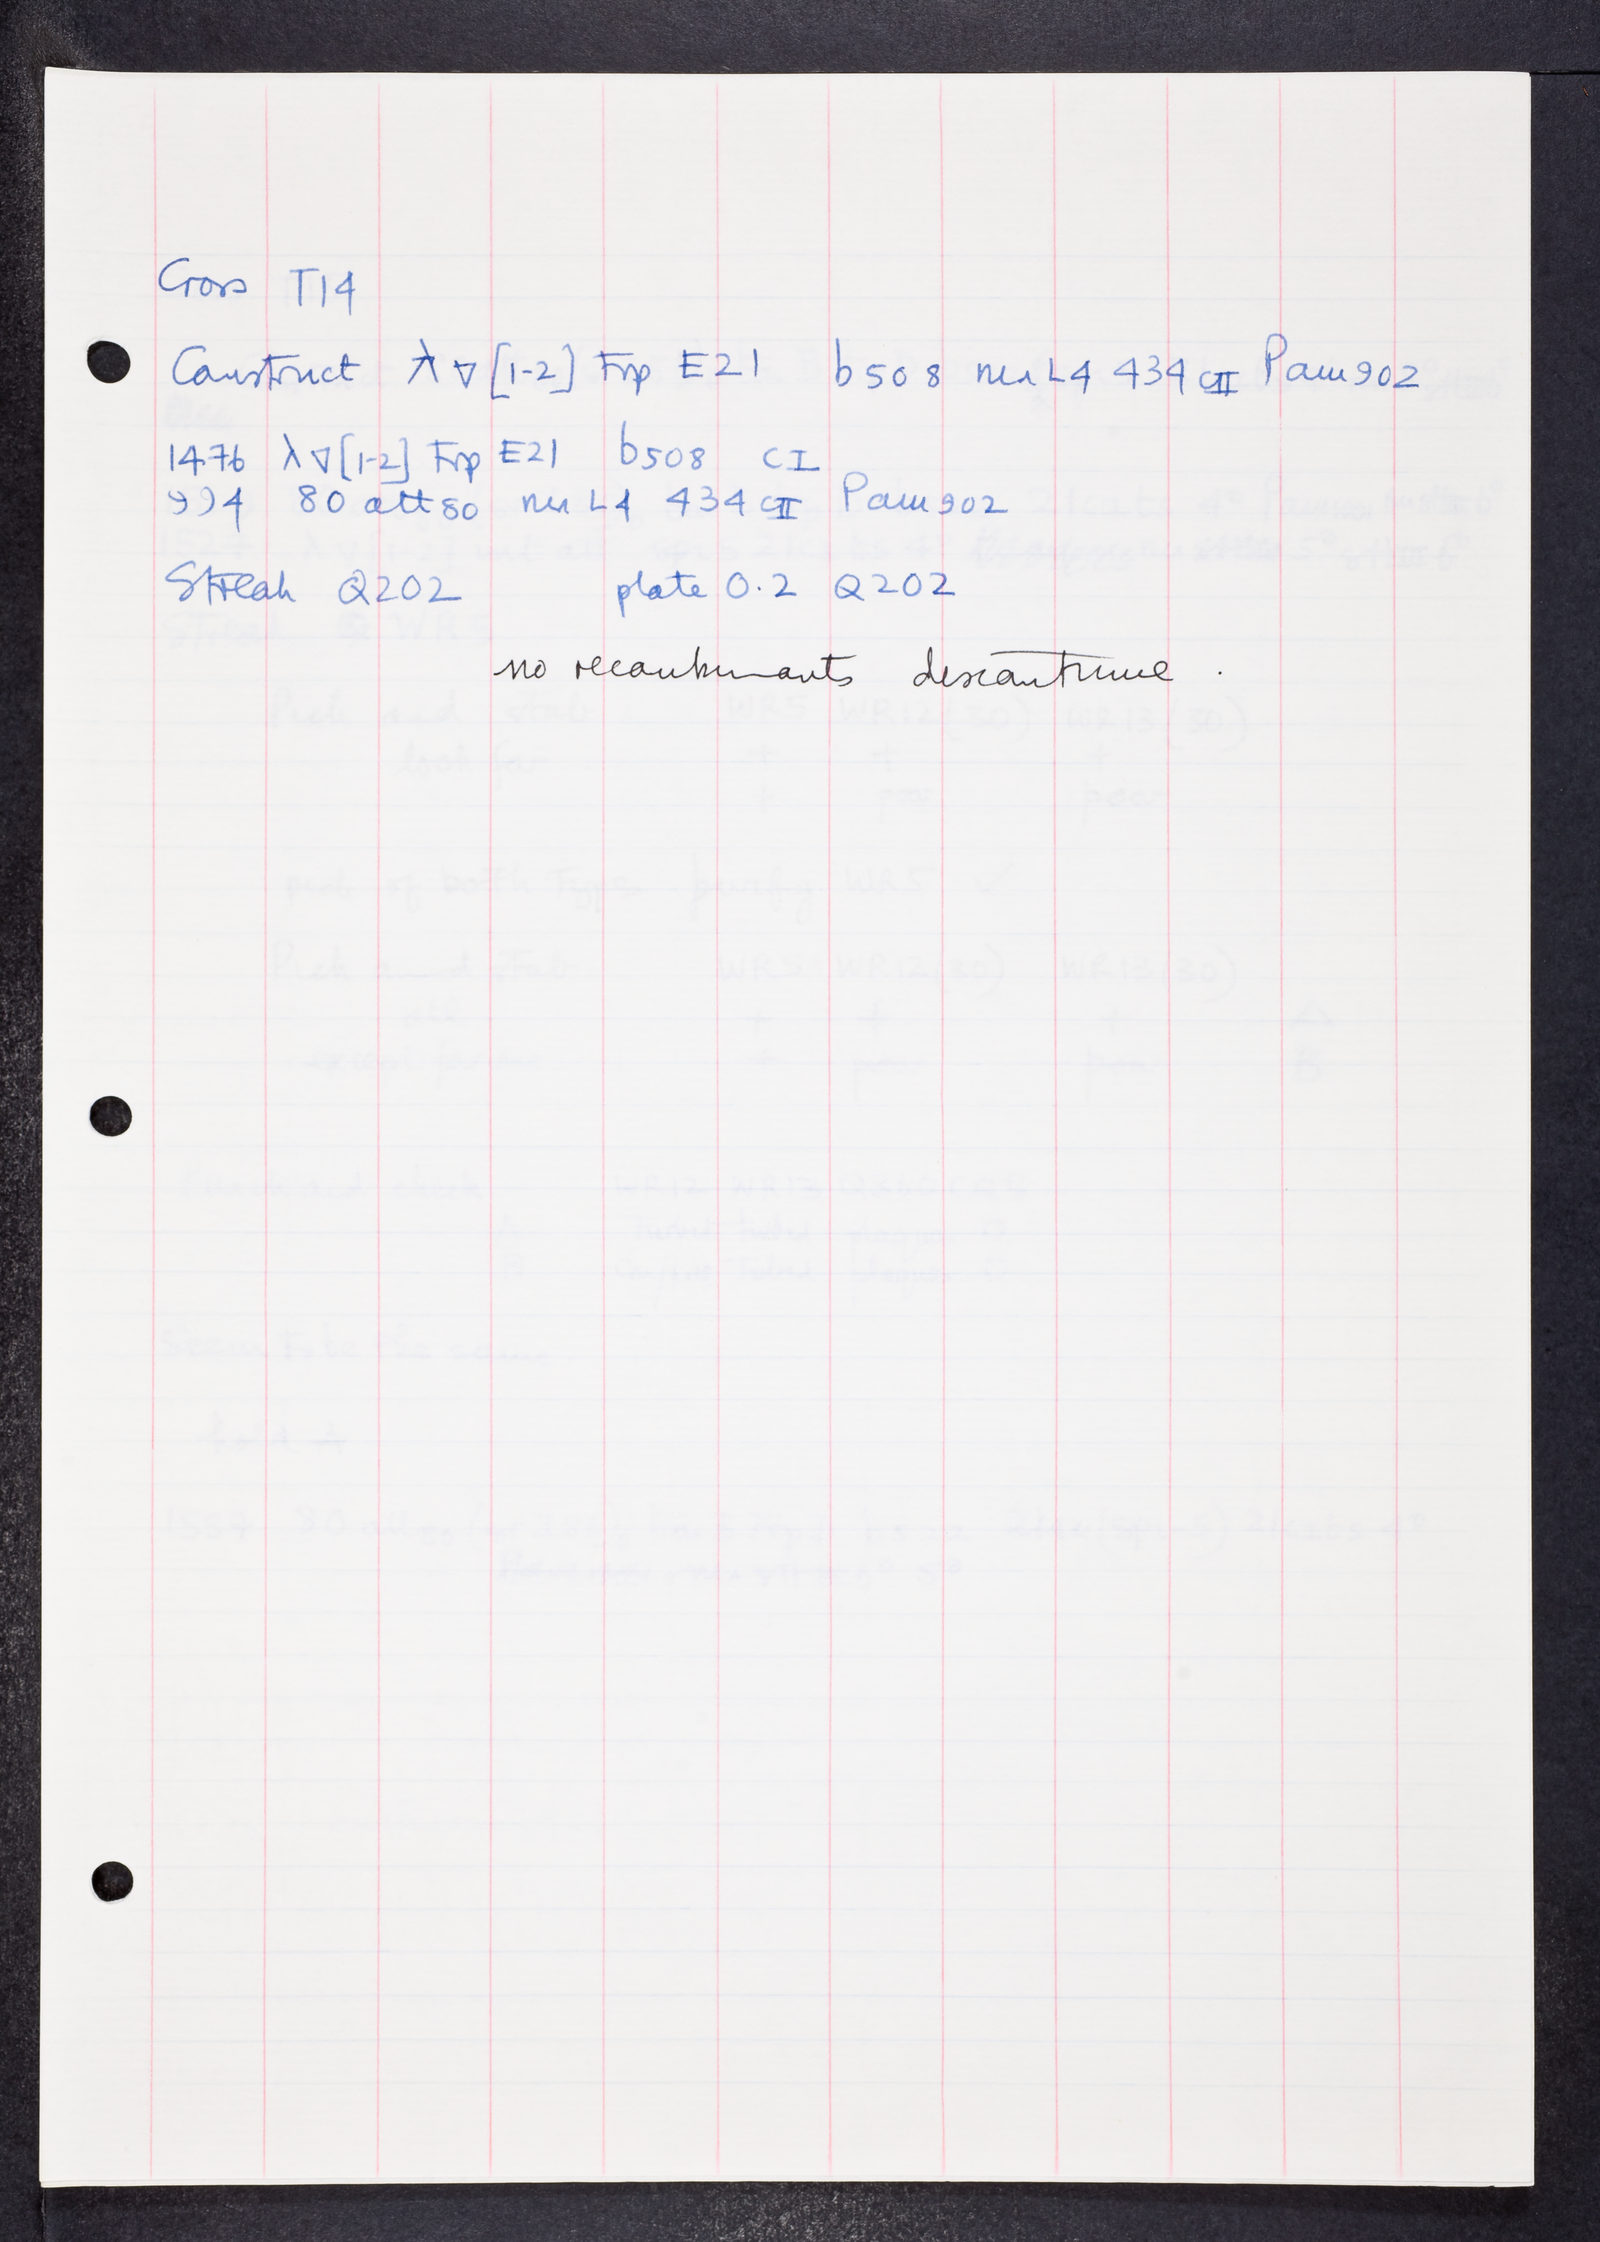 Cross T14
Construct λ∇[1-2] Trp E21 b508 nin L4 434 cII Pam902
1476 λ∇[1-2] Trp E21 b508 cI
994 80 att80 nin L4 434 cII Pam902
Streak Q202 plate 0.2 Q202
no recombinants discontinue.